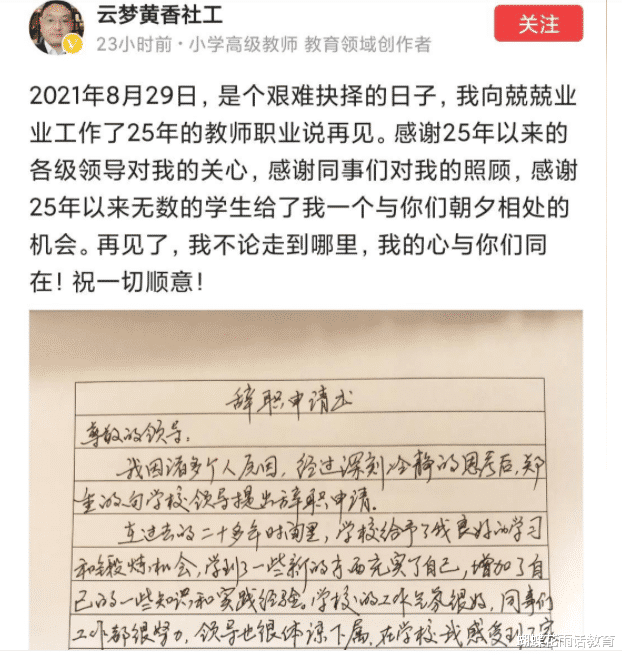 云梦黄香社工
关注
23小时前·小学高级教师 教育领域创作者
2021年8月29日，是个艰难抉择的日子，我向兢兢业
业工作了25年的教师职业说再见。感谢25年以来的
各级领导对我的关心，感谢同事们对我的照顾，感谢
25年以来无数的学生给了我一个与你们朝夕相处的
机会。再见了，我不论走到哪里，我的心与你们同
在！祝一切顺意！
辞职申请书
尊敬的领导：
我因诸多个人原因，经过深刻冷静的思考后，郑
重的向学校领导提出辞职申请。
在过去的二十多年时间里，学校给予了我良好的学习
和锻炼机会，学到了一些新的东西充实了自己，增加了自
己的一些知识和实践经验。学校的工作气氛很好，同事们
工作都很努力，领导也很体谅下属，在学校我感受到了
雨话教育